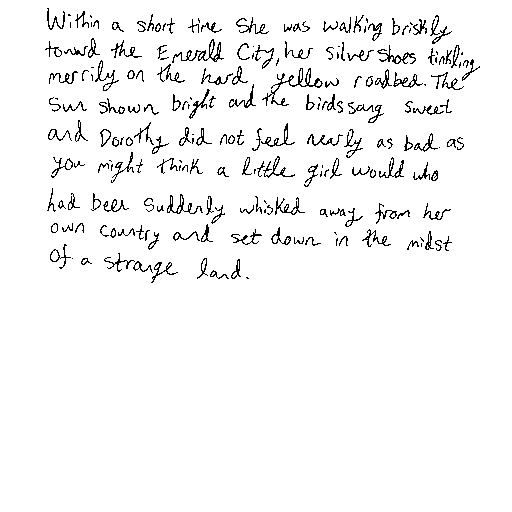 Within a short time she was walking briskly
toward the Emerald City, her silver shoes tinkling
merrily on the hard yellow roadbed. The
sun shown bright and the birds sang sweet
and Dorothy did not feel nearly as bad as
you might think a little girl would who
had been suddenly whisked away from her
own country and set down in the midst
of a strange land.